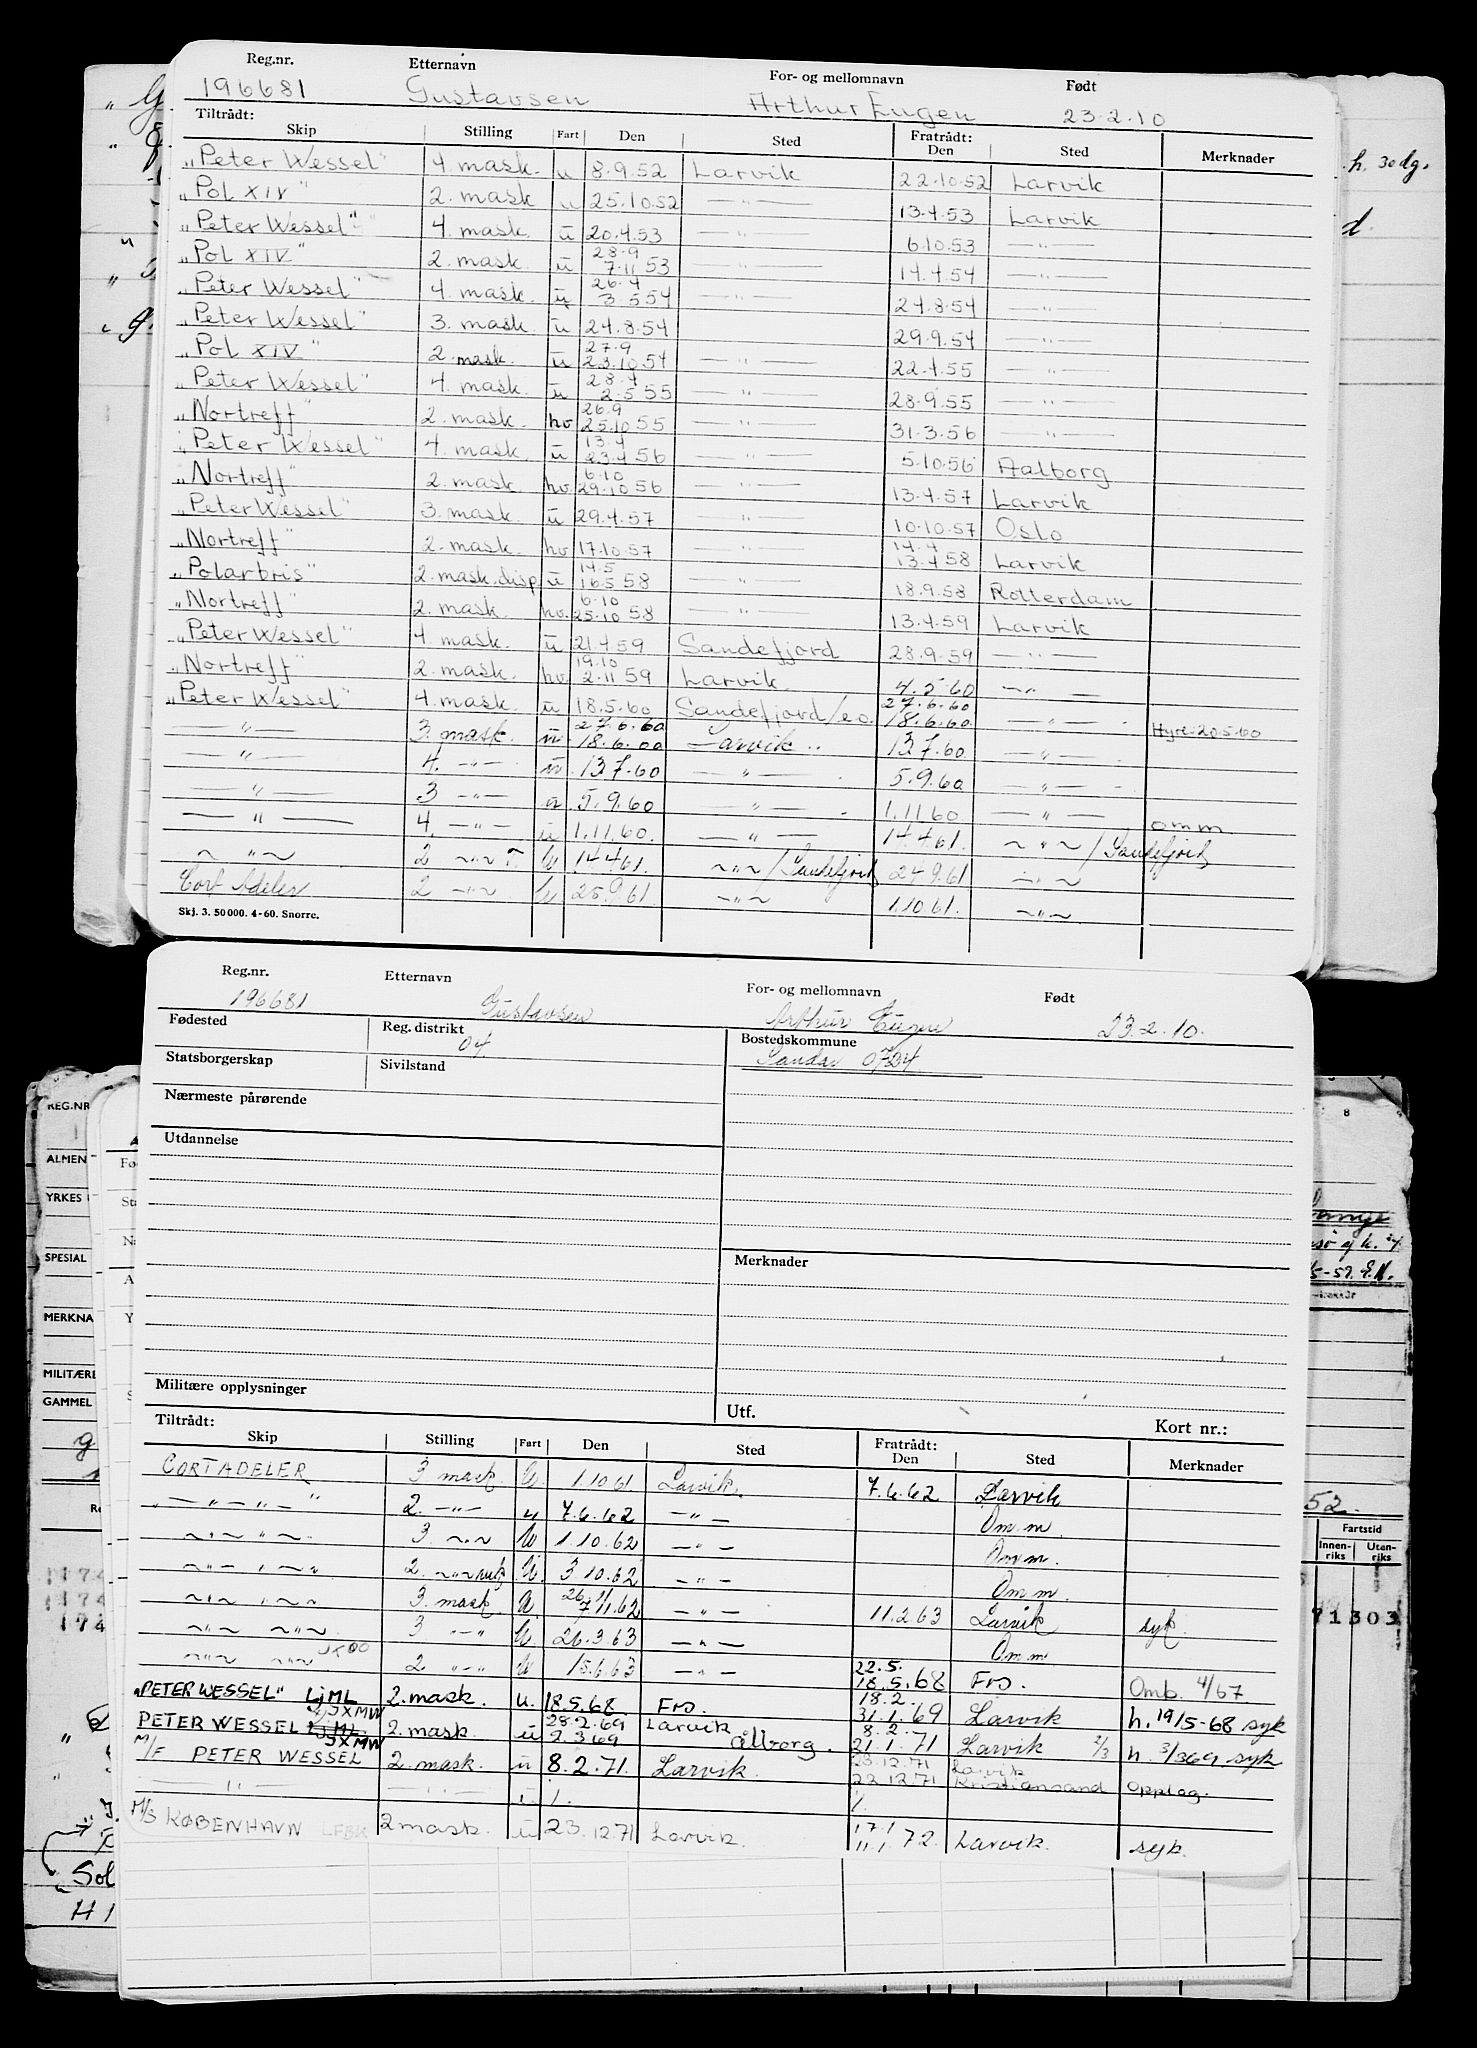 Reg.nr. Etternavn For- og mellomnavn Født
196681 Gustavsen Arthur Eugen 23.2.10
Tiltrådt: Fratrådt:
Skip Stilling Fart Den Sted Den Sted Merknader
„Peter Wessel" 4. mask. u 8.9.52 Larvik 22.10.52 Larvik
„Pol XIV" 2. mask u 25.10.52 —"— 13.4.53 Larvik
„Peter Wessel" 4. mask. u 20.4.53 —"— 6.10.53 —"—
„Pol XIV" 2. mask. u 28.9 7.11 53 —"— 14.4.54 —"—
„Peter Wessel" 4. mask. u 26.4 3.5 54 —"— 24.8.54 —"—
„Peter Wessel" 3. mask. u 24.8.54 29.9.54 —"—
„Pol XIV" 2. mask. u 27.9 23.10 54 —"— 22.4.55 —"—
„Peter Wessel" 4. mask. u 28.4 2.5 55 —"— 28.9.55 —"—
„Nortreff" 2. mask. hv. 26.9 25.10 55 —"— 31.3.56 —"—
„Peter Wessel" 4. mask. u 13.4 23.4 56 —"— 5.10.56 Aalborg
„Nortreff" 2. mask. hv. 6.10 29.10 56 —"— 13.4.57 Larvik
„Peter Wessel" 3. mask. u 29.4.57 —"— 10.10.57 Oslo
„Nortreff" 2. mask. hv. 17.10.57 —"— 14.4 13.4 58 Larvik
„Polarbris" 2. mask. disp. u 14.5 16.5 58 —"— 18.9.58 Rotterdam
„Nortreff" 2. mask. hv. 6.10 25.10 58 —"— 13.4.59 Larvik
„Peter Wessel" 4. mask. u 21.4.59 Sandefjord 28.9.59 —"—
„Nortreff" 2. mask. hv. 19.10 2.11 59 Larvik. 4.5.60 —"—
„Peter Wessel" 4. mask. u 18.5.60 Sandefjord/e.o. 27.6.60 18.6.60. —"— Hyre 20.5.60
—"— 3. mask. u. 27.6.60 18.6.60 Larvik 13.7.60 —"—
—"— 4. —"— u. 13.7.60 —"— 5.9.60 —"—
—"— 3 —"— u. 5.9.60 —"— 1.11.60. —"— omm.
—"— 4. —"— u 1.11.60. —"— 14.4.61. —"— / Sandefjord
—"— 2 —"— u 14.4.61. —"— / Sandefjord 24.9.61 —"—
Cort Adeler 2 —"— u 25.9.61 —"— 1.10.61. —"—
Skj. 3. 50000. 4-60. Snorre.
Reg.nr. Etternavn For- og mellomnavn Født
196681 Gustavsen Arthur Eugen 23.2.10.
Fødested Reg. distrikt 04 Bostedskommune
Statsborgerskap Sivilstand Sandar 0724
Nærmeste pårørende
Utdannelse
Merknader
Militære opplysninger Utf. Kort nr.:
Tiltrådt: Fratrådt:
Skip Stilling Fart Den Sted Den Sted Merknader
CORT ADELER 3 mask. U 1.10.61 Larvik. 7.6.62 Larvik
„—"—"—" 2. —"— u 7.6.62 —"— Om m.
—"— 3. —"— U 1.10.62 —"— Om m.
—"— 2. —"— U. 3.10.62 —"— Om m
—"— 3. mask. U. 26/11 7.11.62 —"— 11.2.63 Larvik syk.
—"— 3 —"— U 26.3.63 —"— Om m
—"— JXOO 2 —"— U 15.6.63 —"— 22.5. 18.5.68 Fr.s. Omb. 4/67
„PETER WESSEL" LJML JXMW 2. mask. u. 18.5.68 Fr.s. 18.2. 31.1.69 Larvik h. 19/5-68 syk
PETER WESSEL LJML JXMW 2. mask. u 28.2.69 2.3 69 Larvik Ålborg. 8.2. 21.1.71 Larvik 2/3 h 3/3 69. syk
M/F PETER WESSEL 2. mask. u 8.2.71. Larvik. 23.12.71 22.12.71 Larvik Kristiansand Opplag.
—"— u 1. 1.
M/S KØBENHAVN 2 mask. u 23.12.71 Larvik. 17.1 11.1.72. Larvik. syk.
REG.NR
ALMEN
YRKES
SPESIAL
MERKNA
MILITÆRE
GAMMEL
h. 30 dg.
8
52.
Fartstid
Innenriks Utenriks
71303
174
174
174
Sol
H 1